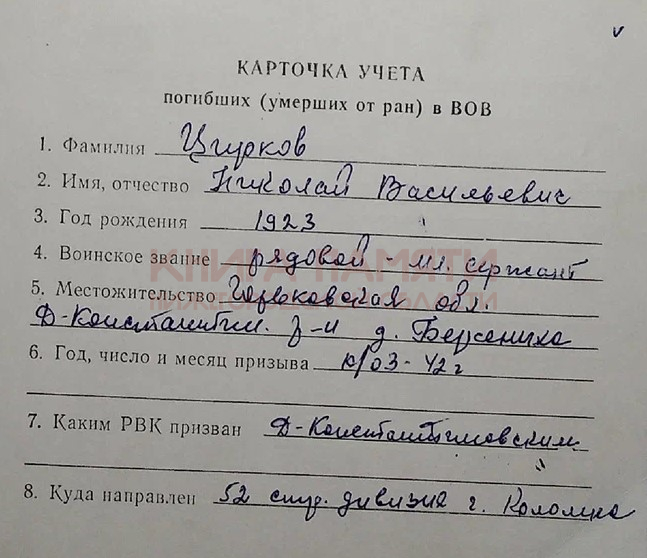 КАРТОЧКА УЧЕТА
погибших (умерших от ран) в ВОВ
1. Фамилия Цгурков
2. Имя, отчество Николай Васильевич
3. Год рождения 1923
КНИГА ПАМЯТИ
4. Воинское звание рядовой - мл. сержант
НИЖЕГОРОДСКОЙ ОБЛАСТИ
5. Местожительство Горьковская обл.
Д-Константин. р-н д. Берсениха
6. Год, число и месяц призыва 03-42 г
7. Каким РВК призван Д-Константиновским
8. Куда направлен 52 стр. дивизия г. Коломна